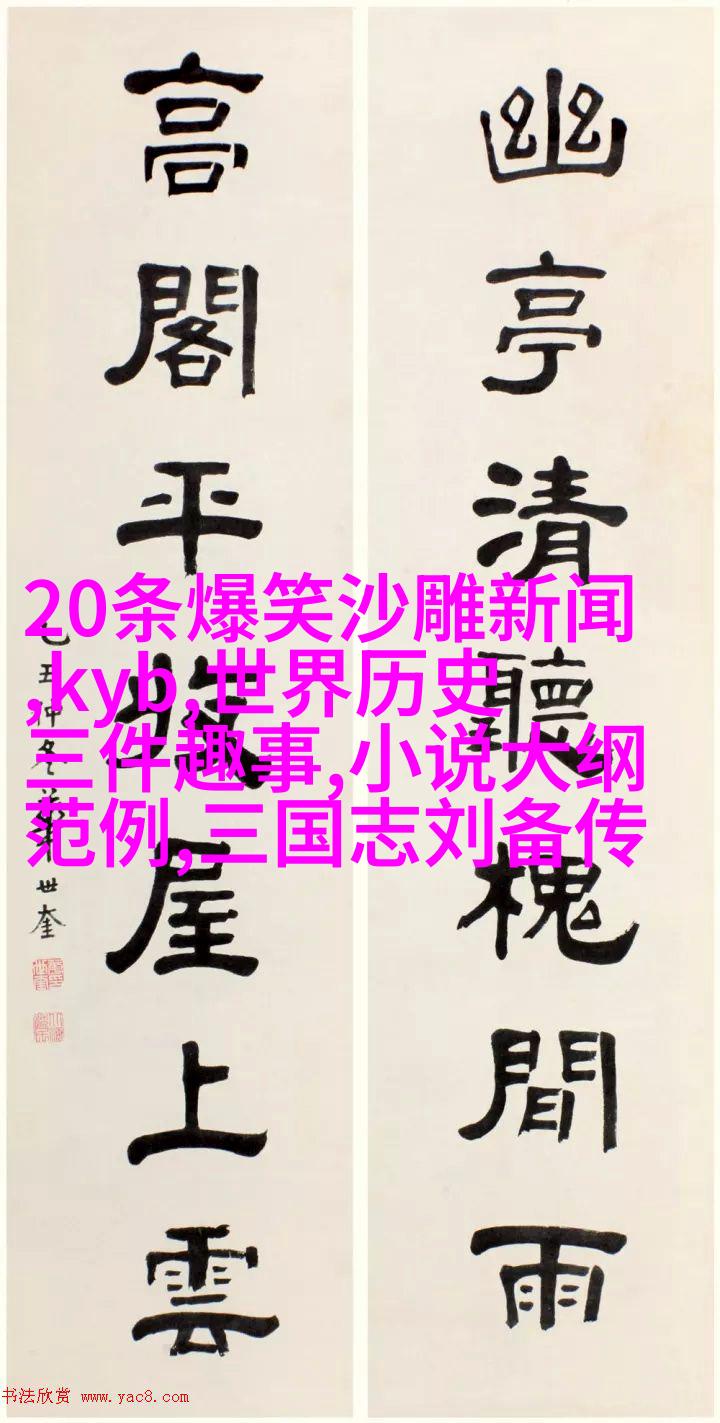 幽亭清聽槐間雨
高閣平屋上雲
乙丑仲冬華世奎
20条爆笑沙雕新闻
,kyb,世界历史
三件趣事,小说大纲
范例,三国志刘备传
书法欣赏 www.yac8.com